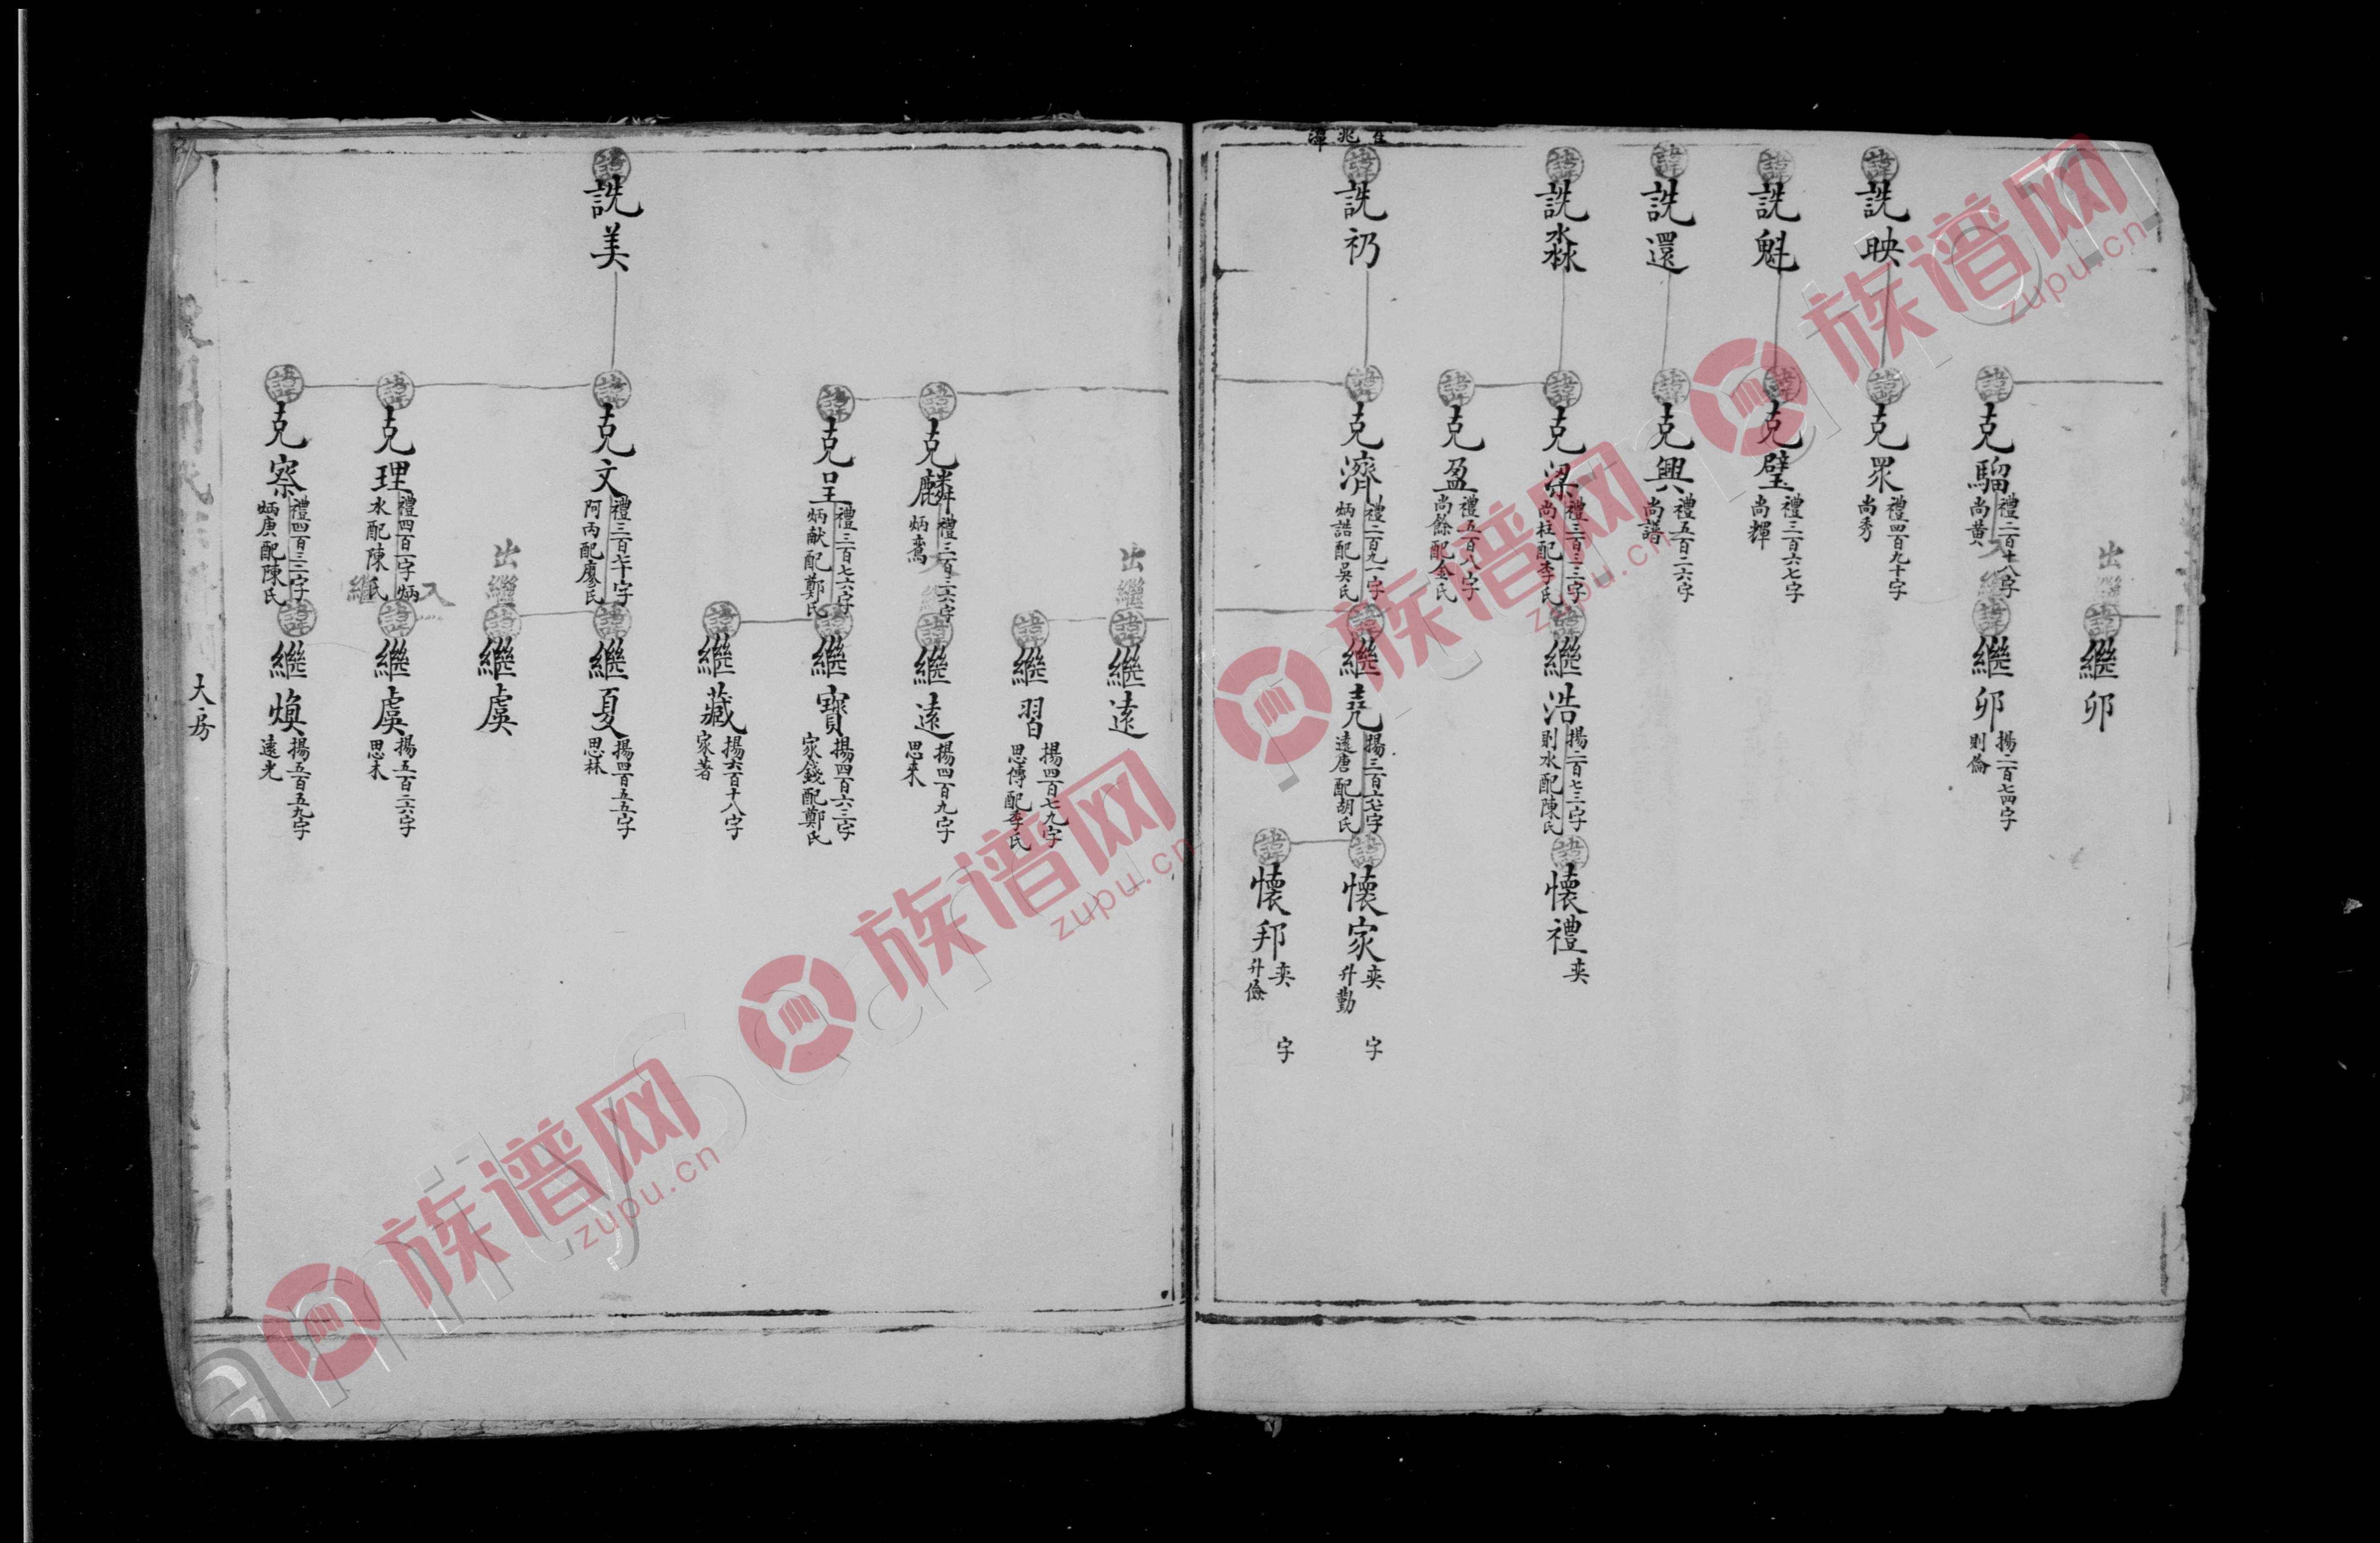 出繼
諱
繼卯
諱
克騮
禮二百十八字
尚黄
入繼
諱
繼卯
揚二百七四字
則倫
諱
詵映
諱
克眾
禮四百九十字
尚秀
諱
詵魁
諱
克璧
禮三百六七字
尚輝
諱
詵還
諱
克興
禮五百二六字
尚譜
諱
詵淼
諱
克梁
禮三百三三字
尚柱配李氏
諱
繼浩
揚二百七三字
則水配陳氏
諱
懷禮
奕
諱
克盈
禮五百八字
尚餘配金氏
諱
詵礽
諱
克濟
禮二百九一字
炳誥配吳氏
諱
繼堯
揚三百六七字
遠唐配胡氏
諱
懷家
奕 字
升勤
諱
懷邦
奕 字
升儉
出繼
諱
繼遠
諱
繼習
揚四百七九字
思傳配李氏
諱
克麟
禮三百三六字
炳鸞
諱
繼遠
揚四百九字
思來
諱
克呈
禮三百七六字
炳献配鄭氏
諱
繼寶
揚四百六三字
家錢配鄭氏
諱
繼藏
揚六百十八字
家著
諱
詵美
諱
克文
禮三百七十字
阿丙配廖氏
諱
繼夏
揚四百五五字
思林
出繼
諱
繼虞
諱
克理
禮四百一字炳
水配陳氏
入繼
諱
繼虞
揚五百二六字
思木
諱
克察
禮四百三三字
炳庚配陳氏
諱
繼煥
揚五百五九字
遠光
大房
族谱网
zupu.cn
族谱网
zupu.cn
族谱网
zupu.cn
族谱网
zupu.cn